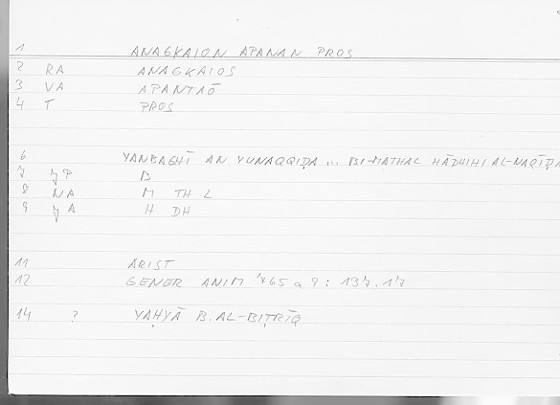 1 ANAGKAION APANAN PROS
2 RA ANAGKAIOS
3 VA APANTAŌ
4 T PROS
6 YANBAGHĪ AN YUNAQQIḌA ... BI-MATHAL HĀDHIHI AL-NAQĪḌA
7 YP B
8 NA M TH L
9 YA H DH
11 ARIST
12 GENER ANIM 765 a 9 : 137.17
14 ? YAḤYĀ B. AL-BIṬRĪQ